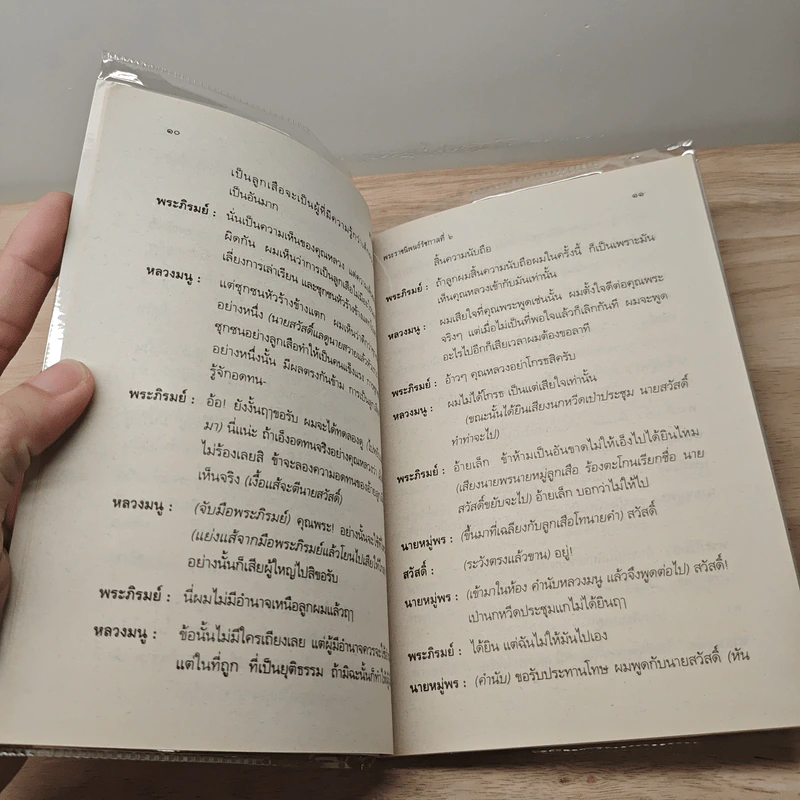 ๑๐
เป็นลูกเสือจะเป็นผู้ที่มีความรู้กว่า
เป็นอันมาก
พระภิรมย์ : นั่นเป็นความเห็นของคุณหลวง แต่ความ
ผิดกัน ผมเห็นว่าการเป็นลูกเสือไม่
เลี่ยงการเล่าเรียน และซุกซนหัวร้างข้าง
หลวงมนู : แต่ซุกซนหัวร้างข้างแตก ผมเห็นว่า
อย่างหนึ่ง (นายสวัสดิ์แลดูนายสวายแล้ว
ซุกซนอย่างลูกเสือทำให้เป็นคนแข็งแรง
อย่างหนึ่งนั้น มีผลตรงกันข้าม การเป็น
รู้จักอดทน-
พระภิรมย์ : อ้อ! ยังงั้นฤๅขอรับ ผมจะได้ทดลองดู
มา) นี่แน่ะ ถ้าเอ็งอดทนจริงอย่างคุณหลวงว่า
ไม่ร้องเลยสิ ข้าจะลองความอดทนของ
เห็นจริง (เงื้อแส้จะตีนายสวัสดิ์)
หลวงมนู : (จับมือพระภิรมย์) คุณพระ! อย่างนั้นจะ
(แย่งแส้จากมือพระภิรมย์แล้วโยนไปเสีย
อย่างนั้นก็เสียผู้ใหญ่ไปสิขอรับ
พระภิรมย์ : นี่ผมไม่มีอำนาจเหนือลูกผมแล้วฤๅ
หลวงมนู : ข้อนั้นไม่มีใครเถียงเลย แต่ผู้มีอำนาจควรจะใช้
แต่ในที่ถูก ที่เป็นยุติธรรม ถ้ามิฉะนั้นก็
พระราชนิพนธ์รัชกาลที่ ๖
๑๑
สิ้นความนับถือ
พระภิรมย์ : ถ้าลูกผมสิ้นความนับถือผมในครั้งนี้ ก็เป็นเพราะมัน
เห็นคุณหลวงเข้ากับมันเท่านั้น
หลวงมนู : ผมเสียใจที่คุณพระพูดเช่นนั้น ผมตั้งใจดีต่อคุณพระ
จริงๆ แต่เมื่อไม่เป็นที่พอใจแล้วก็เลิกกันที ผมจะพูด
อะไรไปอีกก็เสียเวลาผมต้องขอลาที
พระภิรมย์ : อ้าวๆ คุณหลวงอย่าโกรธสิครับ
หลวงมนู : ผมไม่ได้โกรธ เป็นแต่เสียใจเท่านั้น
(ขณะนั้นได้ยินเสียงนกหวีดเป่าประชุม นายสวัสดิ์
ทำท่าจะไป)
พระภิรมย์ : อ้ายเล็ก ข้าห้ามเป็นอันขาดไม่ให้เอ็งไปได้ยินไหม
(เสียงนายพรนายหมู่ลูกเสือ ร้องตะโกนเรียกชื่อ นาย
สวัสดิ์ขยับจะไป) อ้ายเล็ก บอกว่าไม่ให้ไป
นายหมู่พร : (ขึ้นมาที่เฉลียงกับลูกเสือโทนายคำ) สวัสดิ์
สวัสดิ์ : (ระวังตรงแล้วขาน) อยู่!
นายหมู่พร : (เข้ามาในห้อง คำนับหลวงมนู แล้วจึงพูดต่อไป) สวัสดิ์!
เป่านกหวีดประชุมแกไม่ได้ยินฤๅ
พระภิรมย์ : ได้ยิน แต่ฉันไม่ให้มันไปเอง
นายหมู่พร : (คำนับ) ขอรับประทานโทษ ผมพูดกับนายสวัสดิ์ (หัน